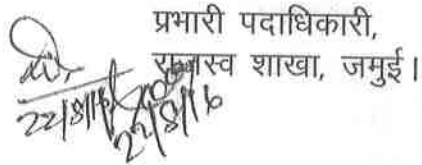 प्रभारी पदाधिकारी,
राजस्व शाखा, जमुई।
22/8/16
22/8/16